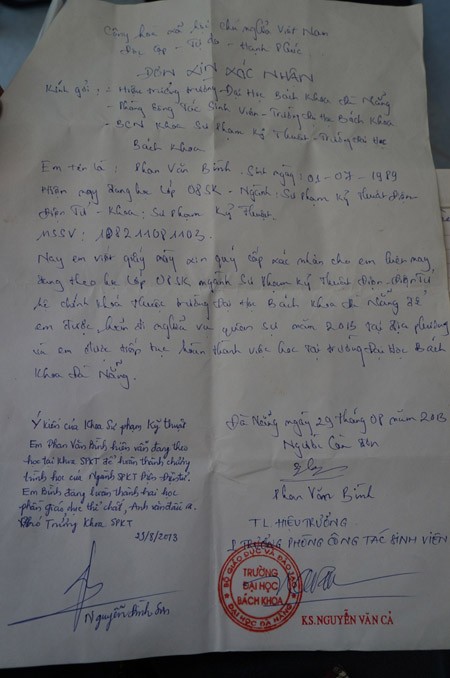 Cộng hòa xã hội chủ nghĩa Việt Nam
Độc lập - Tự do - Hạnh Phúc
ĐƠN XIN XÁC NHẬN
Kính gửi: - Hiệu trưởng trường Đại Học Bách Khoa Đà Nẵng
- Phòng Công Tác Sinh Viên - Trường Đại Học Bách Khoa
- BCN Khoa Sư Phạm Kỹ Thuật - Trường Đại Học
Bách Khoa
Em tên là: Phan Văn Bính. Sinh ngày: 01-07-1989
Hiện nay đang học lớp 08SK - Ngành: Sư Phạm Kỹ Thuật Điện
Điện Tử - Khoa: Sư Phạm Kỹ Thuật.
MSSV: 108211081103.
Nay em viết giấy này xin quý cấp xác nhận cho em hiện nay
đang theo học lớp 08SK ngành Sư Phạm Kỹ Thuật Điện - Điện Tử
hệ chính khoá thuộc trường Đại Học Bách Khoa Đà Nẵng để
em được hoãn đi nghĩa vụ quân sự năm 2013 tại địa phương
và em được tiếp tục hoàn thành việc học tại trường Đại Học Bách
Khoa Đà Nẵng.
Đà Nẵng ngày 29 tháng 08 năm 2013
Người Làm Đơn
Phan Văn Bính
Ý kiến của Khoa Sư phạm Kỹ thuật
Em Phan Văn Bính hiện vẫn đang theo
học tại Khoa SPKT để hoàn thành chương
trình học của Ngành SPKT Điện Điện tử.
Em Bính đang hoàn thành hai học
phần giáo dục thể chất, Anh văn
Phó Trưởng Khoa SPKT
29/8/2013
Nguyễn Linh Sơn
TL HIỆU TRƯỞNG
TRƯỞNG PHÒNG CÔNG TÁC SINH VIÊN
BỘ GIÁO DỤC VÀ ĐÀO TẠO
TRƯỜNG
ĐẠI HỌC
BÁCH KHOA
ĐẠI HỌC ĐÀ NẴNG
KS.NGUYỄN VĂN CẢ